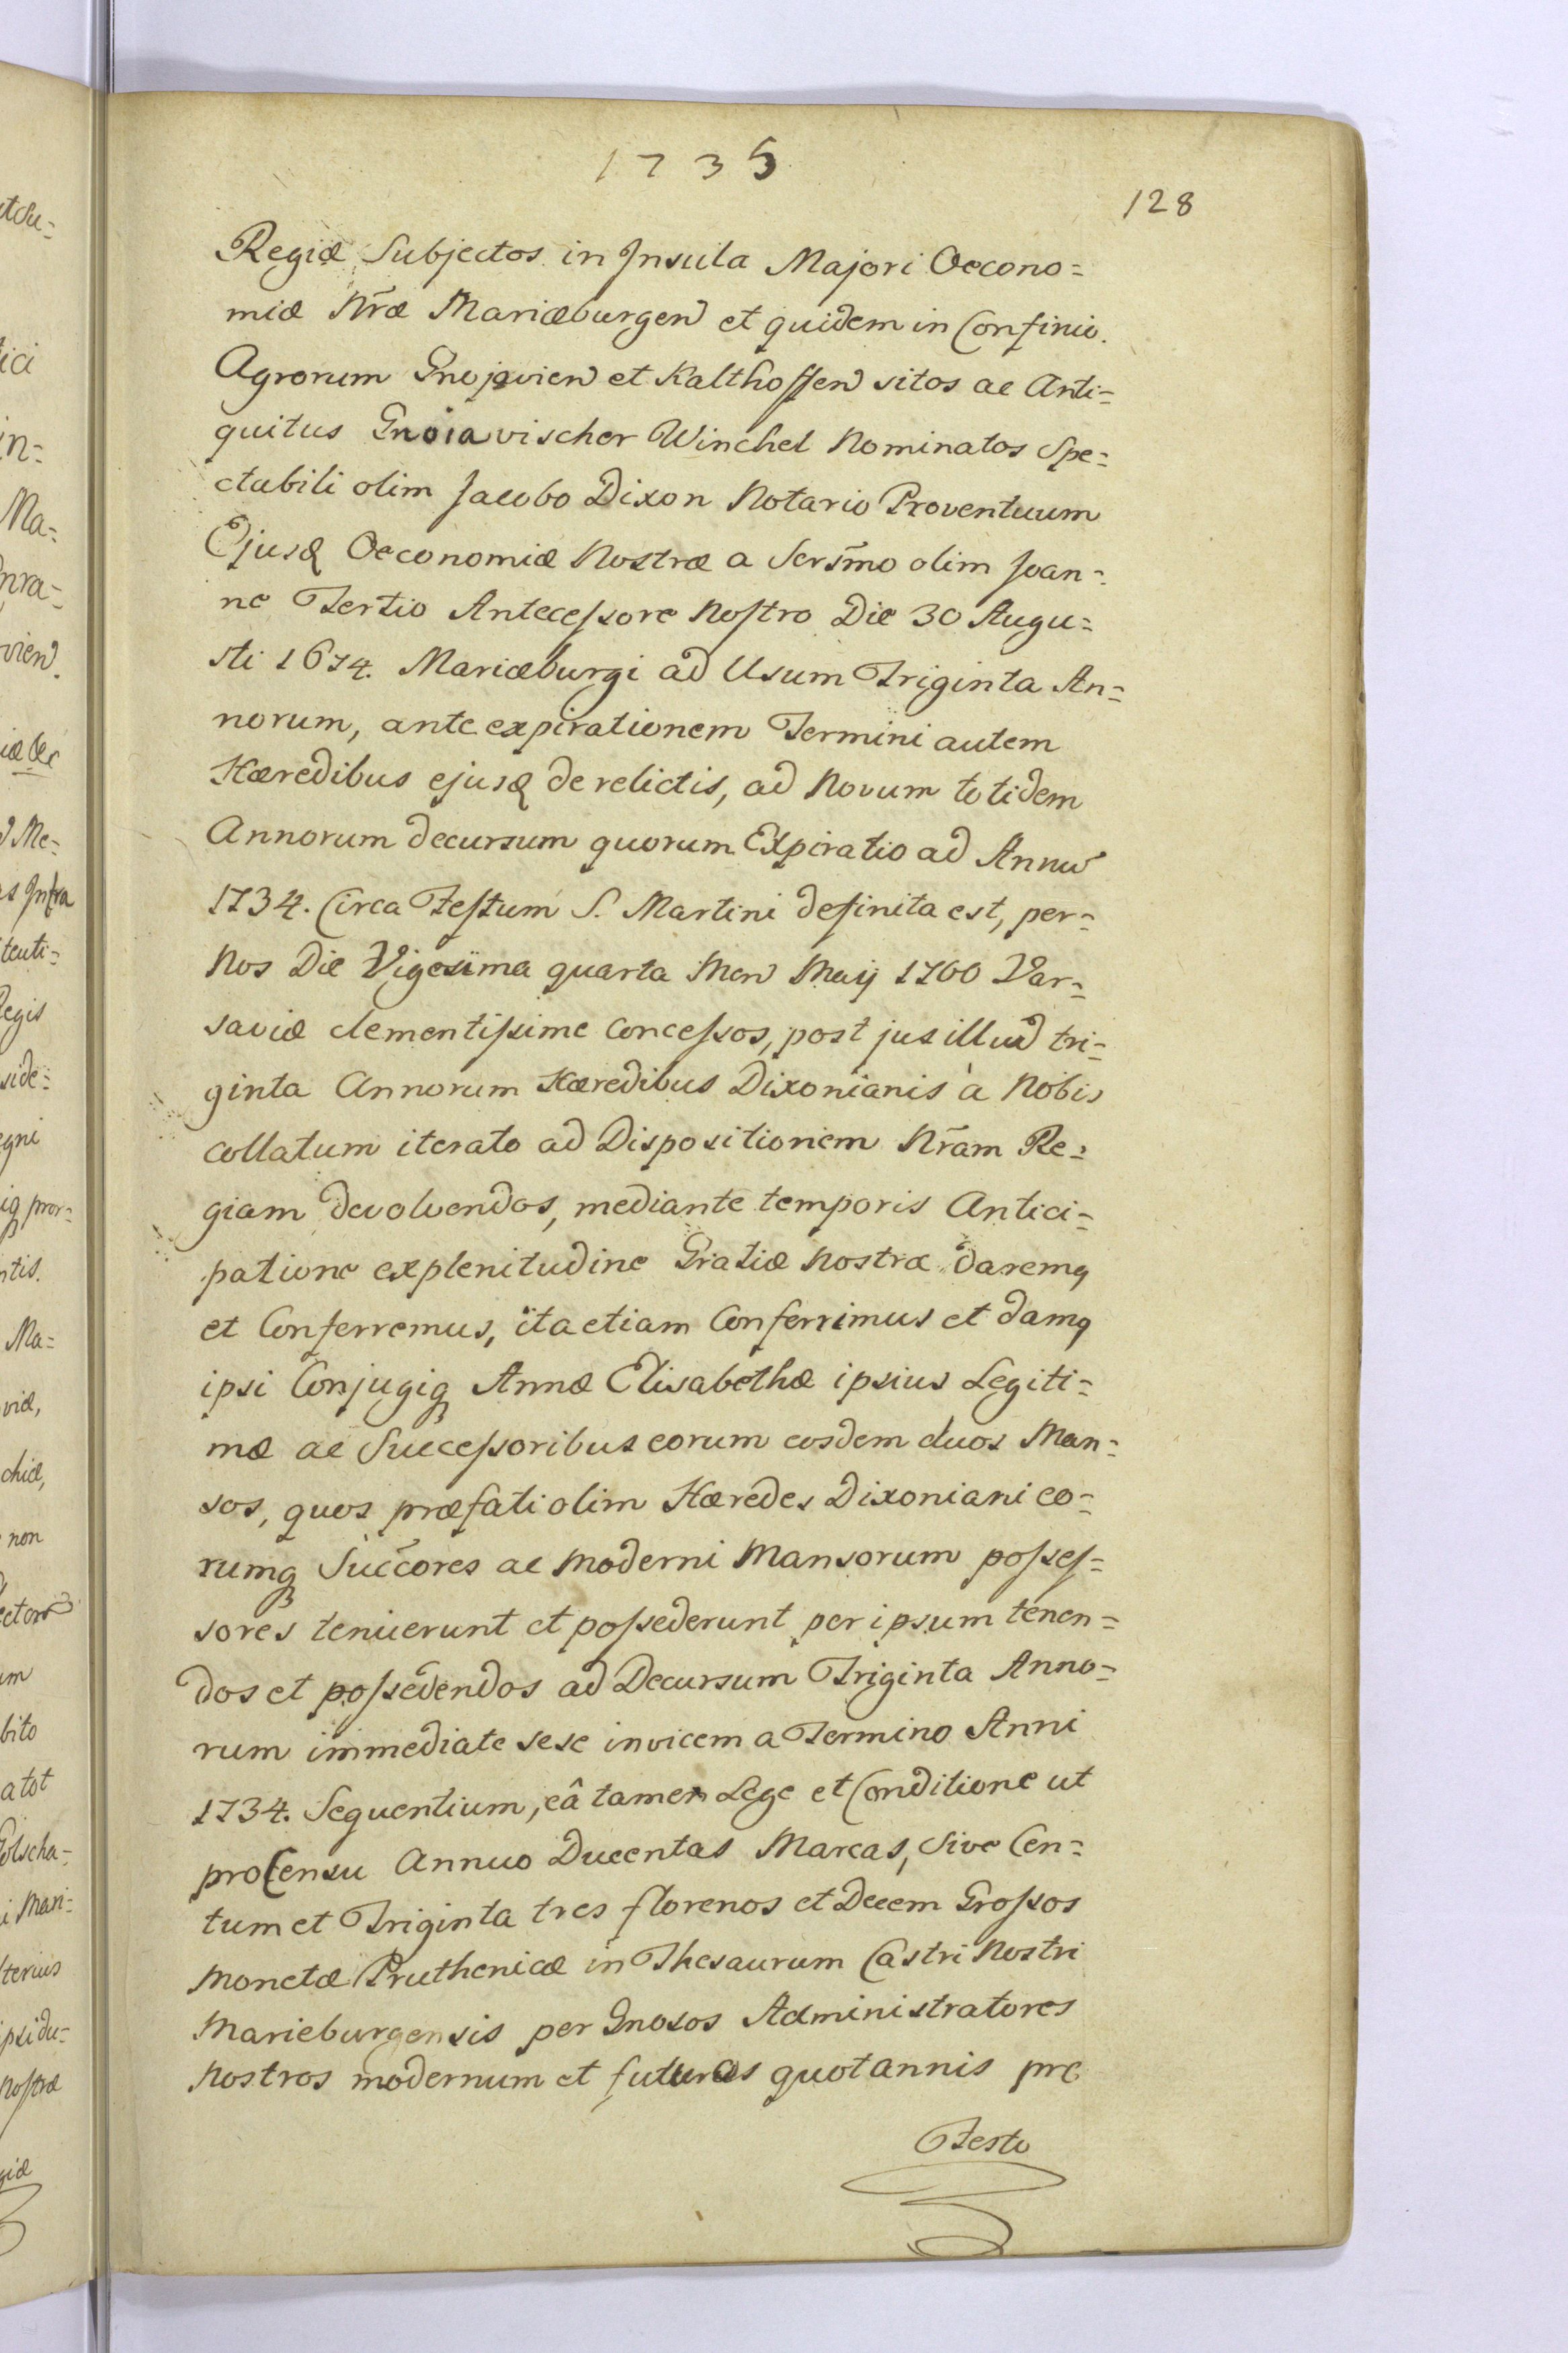 1735
128
Regiæ Subjectos in Insula Majori Oecono=
miæ Nr̃æ Mariæburgen et quidem in Confinio
Agrorum Gnojavien et Kalthoffen sitos ac Anti=
quitus Gnoiavischer Winchel Nominatos Spe=
ctabili olim Jacobo Dixon Notario Proventuum
Ejusq Oeconomiæ Nostræ a Serm̃o olim Joan=
ne Tertio Antecessore Nostro Die 30 Augu=
sti 1674. Mariæburgi ad Usum Triginta An=
norum, ante expirationem Termini autem
Hæredibus ejusq derelictis, ad Novum totidem
Annorum decursum quorum Expiratio ad Annũ
1734. Circa Festum S. Martini definita est, per=
Nos Die Vigesima quarta Men Maij 1700 Var=
saviæ clementissime Concessos, post jus illud tri=
ginta Annorum Hæredibus Dixonianis à Nobis
Collatum iterato ad Dispositionem Nr̃am Re=
giam devolvendos, mediante temporis Antici=
patione explenitudine Gratiæ Nostræ daremq
et Conferremus, ita etiam Conferrimus et damq
ipsi Conjugiq Annæ Elisabethæ ipsius Legiti=
mæ ac Successoribus eorum eosdem duos Man=
sos, quos præfati olim Hæredes Dixoniani eo=
rumq Succ̃ores ac Moderni Mansorum posses=
sores tenuerunt et possederunt per ipsum tenen=
dos et possedendos ad Decursum Triginta Anno=
rum immediate sese invicem a Termino Anni
1734. Sequentium, eâ tamen Lege et Conditione ut
pro Censu Annuo Ducentas Marcas, Sive Cen=
tum et Triginta tres florenos et Decem Grossos
Monetæ Pruthenicæ in Thesaurum Castri Nostri
Marieburgensis per Gnosos Administratores
Nostros modernum et futuros quotannis pro
Festo